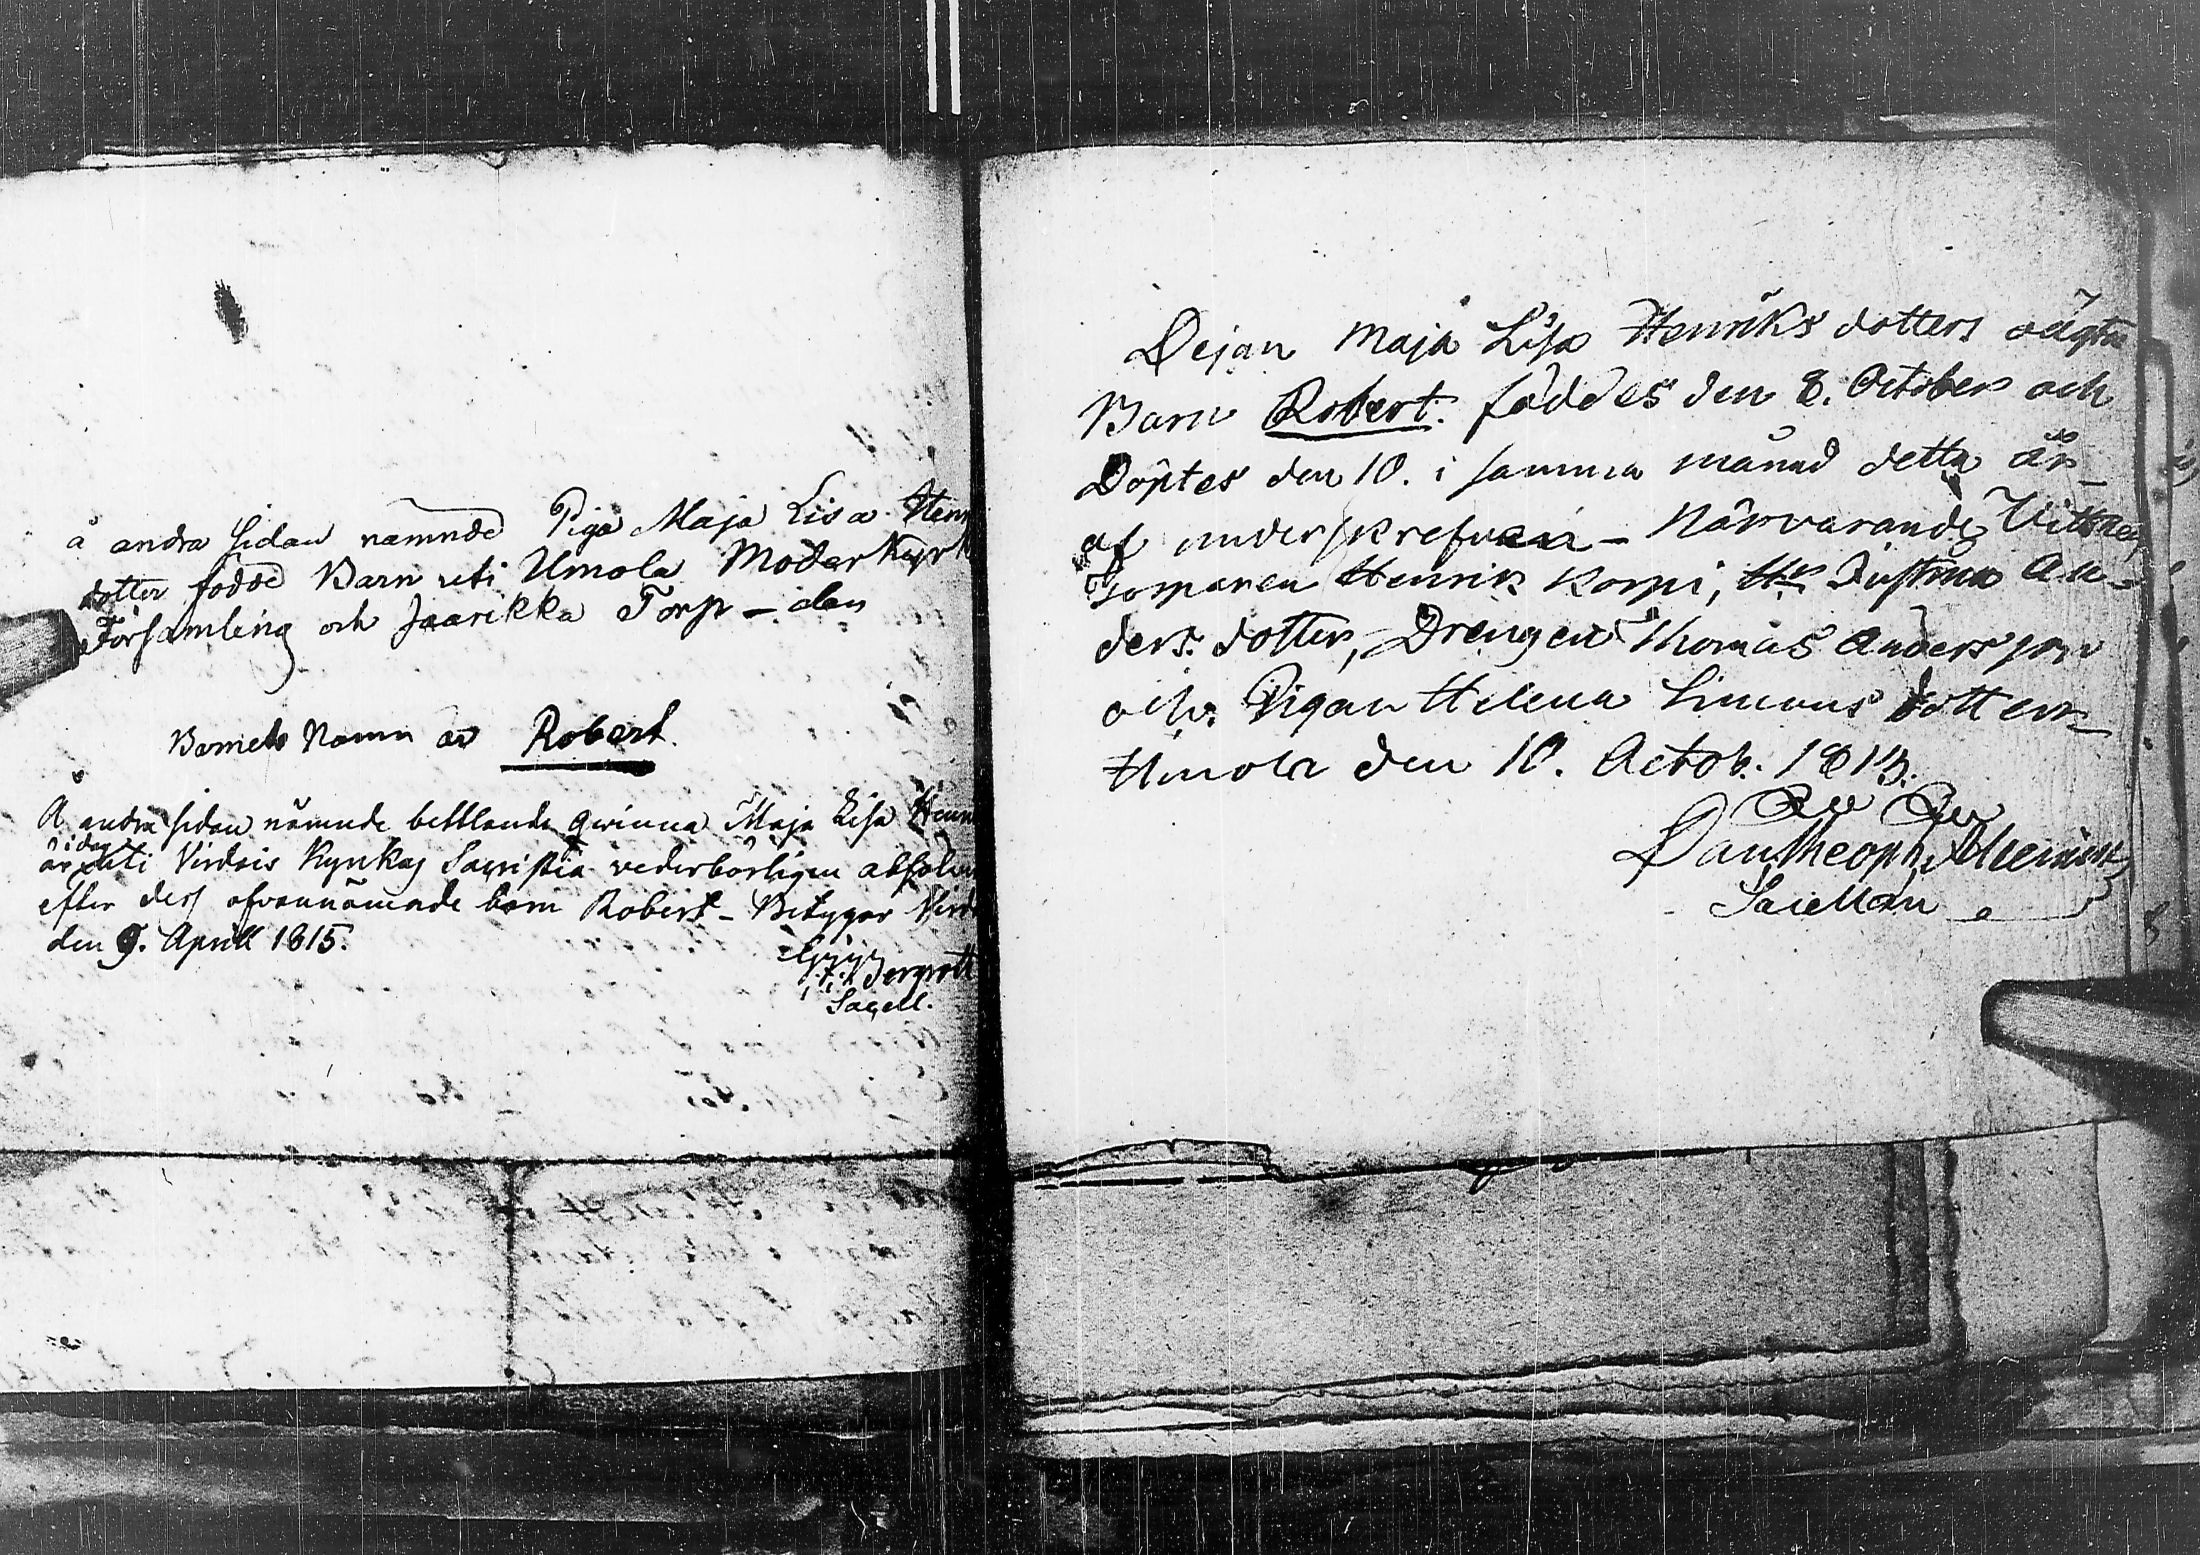 å andra sidan nämnde Piga Maja Lisa Hen
dotter födde Barn uti Umola Moderkyrk
Församling och Jaarikka Torp – den
Barnets Namn är Robert.
Å andra sidan nämnde betlande qwinna Maja Lisa Henr
är i dag uti Virdois Kyrkas Sacristia vederbörligen absol
efter dess ofvannämde barn Robert – Betygar Virdo
den 9. Aprill 1815.
Bergroth
Sacell.
Dejan Maja Lisa Henriks dotters oägta
Barn Robert. föddes den 8. October och
Döptes den 10. i samma månad detta år
af underskrefven – Närvarande Vittnen
Torparen Henrik Korpi, Hu Justina An-
ders. dotter, Drengen Thomas Andersson
och Pigan Helena Simons dotter
Umola den 10. Octob. 1813.
Dan Theoph.
Sacellan